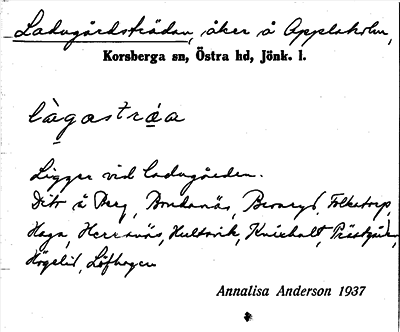 Ladugårdsträdan, åker å Applaholm,
Korsberga sn, Östra hd, Jönk. l.
làgastráa
Ligger vid ladugården.
Dito å Berg, Bondanäs, Folketorp,
Haga, Herrnäs, Hultsvik, Knixhult, Prästgården,
Högelid, Löfhagen
Annalisa Anderson 1937